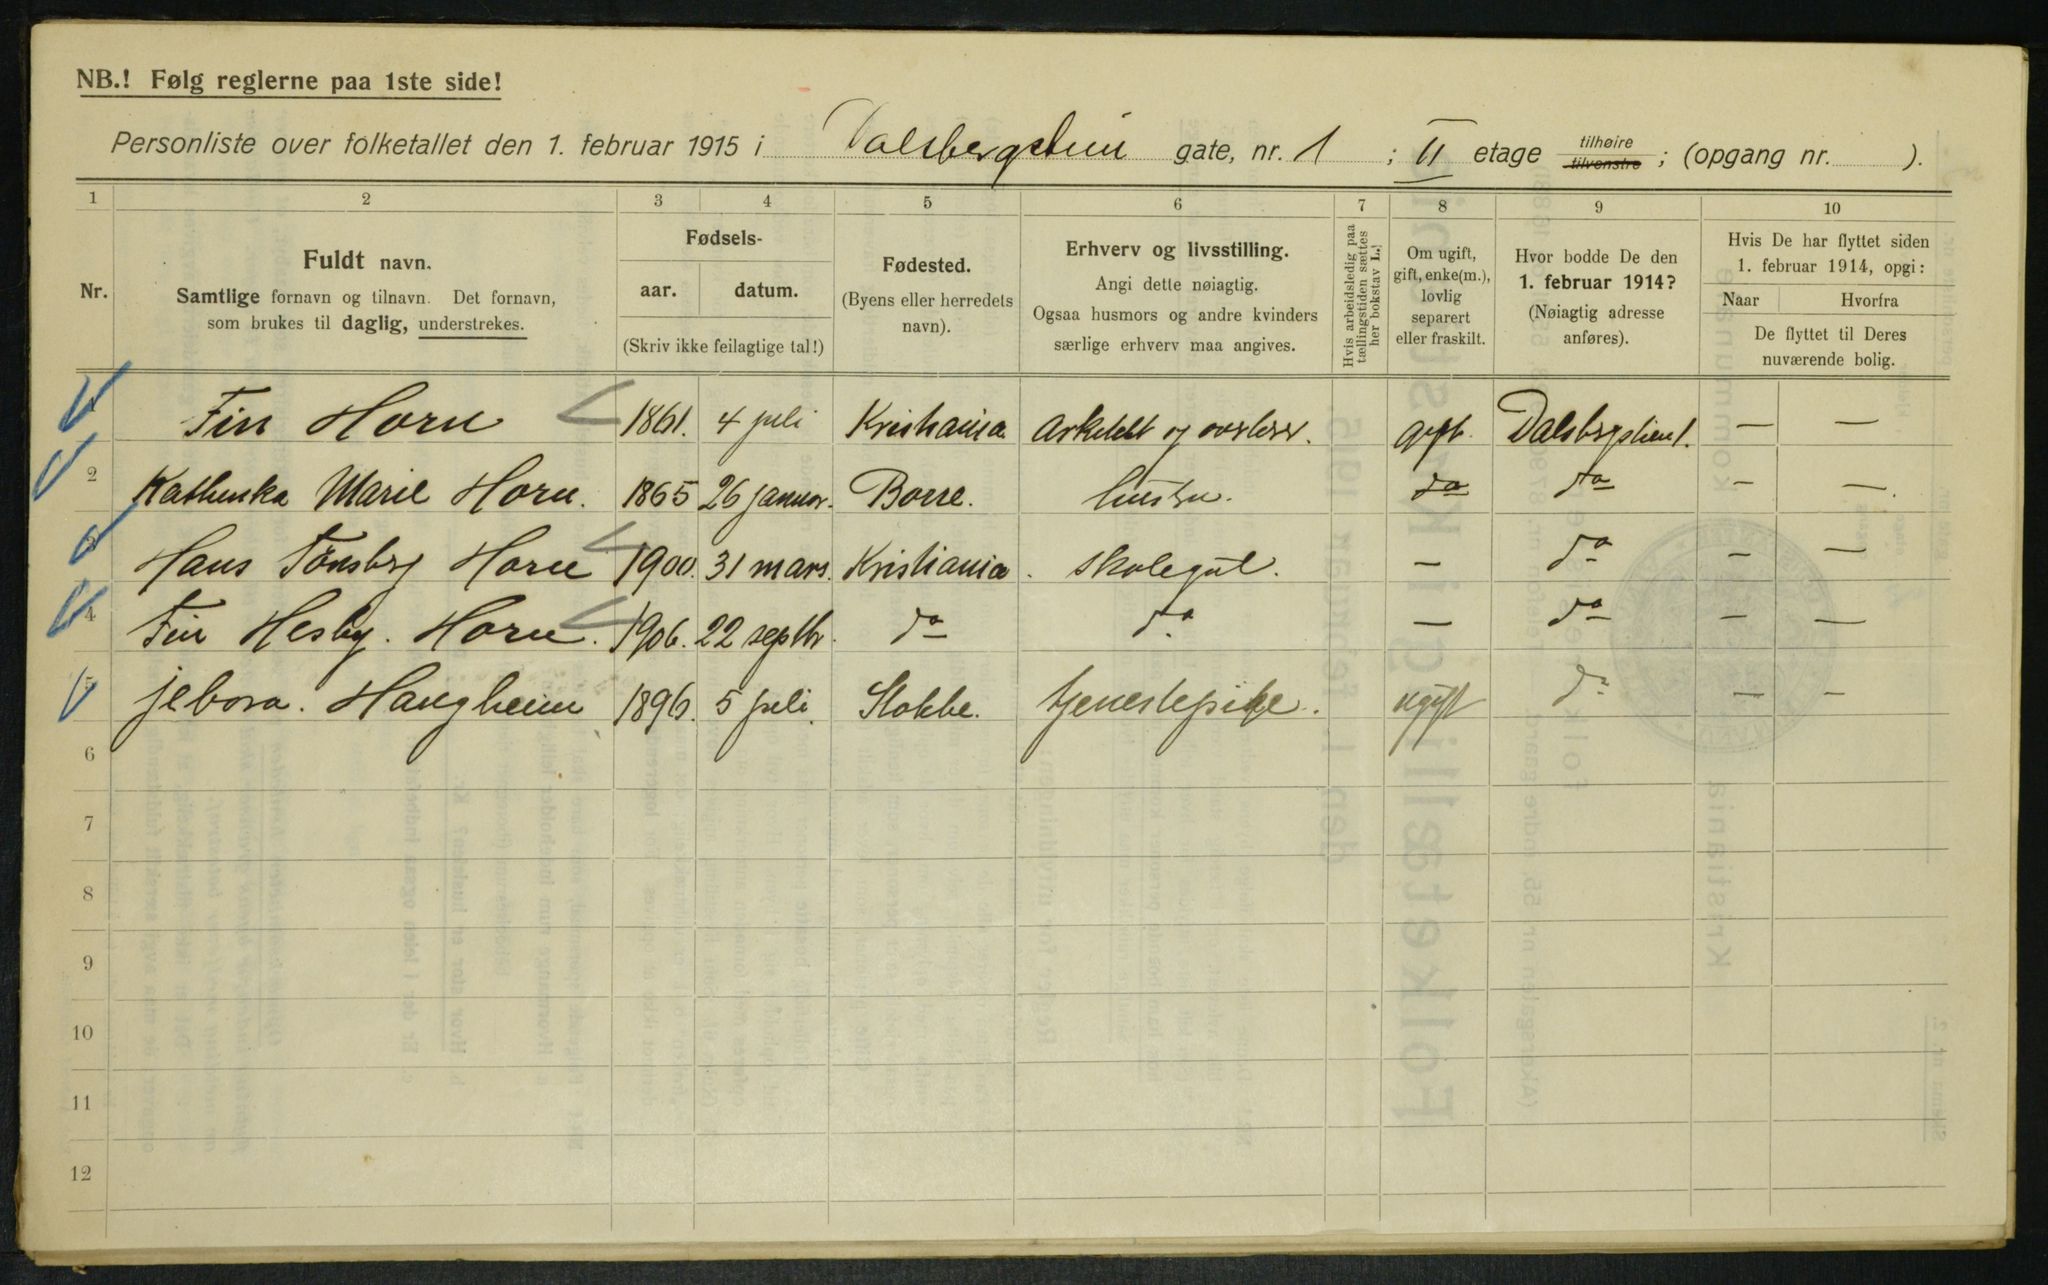 NB.! Følg reglerne paa 1ste side!
Personliste over folketallet den 1. februar 1915 i Dalsbergstien gate, nr. 1 ; II etage tilhøire tilvenstre ; (opgang nr. ).
1 2 3 4 5 6 7 8 9 10
Nr.
Fuldt navn.
Samtlige fornavn og tilnavn. Det fornavn,
som brukes til daglig, understrekes.
Fødsels-
aar. datum.
(Skriv ikke feilagtige tal!)
Fødested.
(Byens eller herredets
navn).
Erhverv og livsstilling.
Angi dette nøiagtig.
Ogsaa husmors og andre kvinders
særlige erhverv maa angives.
Hvis arbeidsledig paa
tællingstiden sættes
her bokstav L.!
Om ugift,
gift, enke(m.),
lovlig
separert
eller fraskilt.
Hvor bodde De den
1. februar 1914?
(Nøiagtig adresse
anføres).
Hvis De har flyttet siden
1. februar 1914, opgi:
Naar Hvorfra
De flyttet til Deres
nuværende bolig.
1 Finn Horn 1861. 4 juli Kristiania arkitekt og overlærer. gift. Dalsbergstien 1. — —
2 Kathinka Marie Horn. 1865 26 januar. Borre. hustru. do do — —
3 Hans Tønsberg Horn 1900. 31 mars. Kristiania. skolegut. — do — —
4 Finn Hesby. Horn. 1906. 22 septbr. do do — do — —
5 jebora. Haugheim 1896. 5 juli. Stokke. tjenestepike. ugift do — —
6
7
8
9
10
11
12